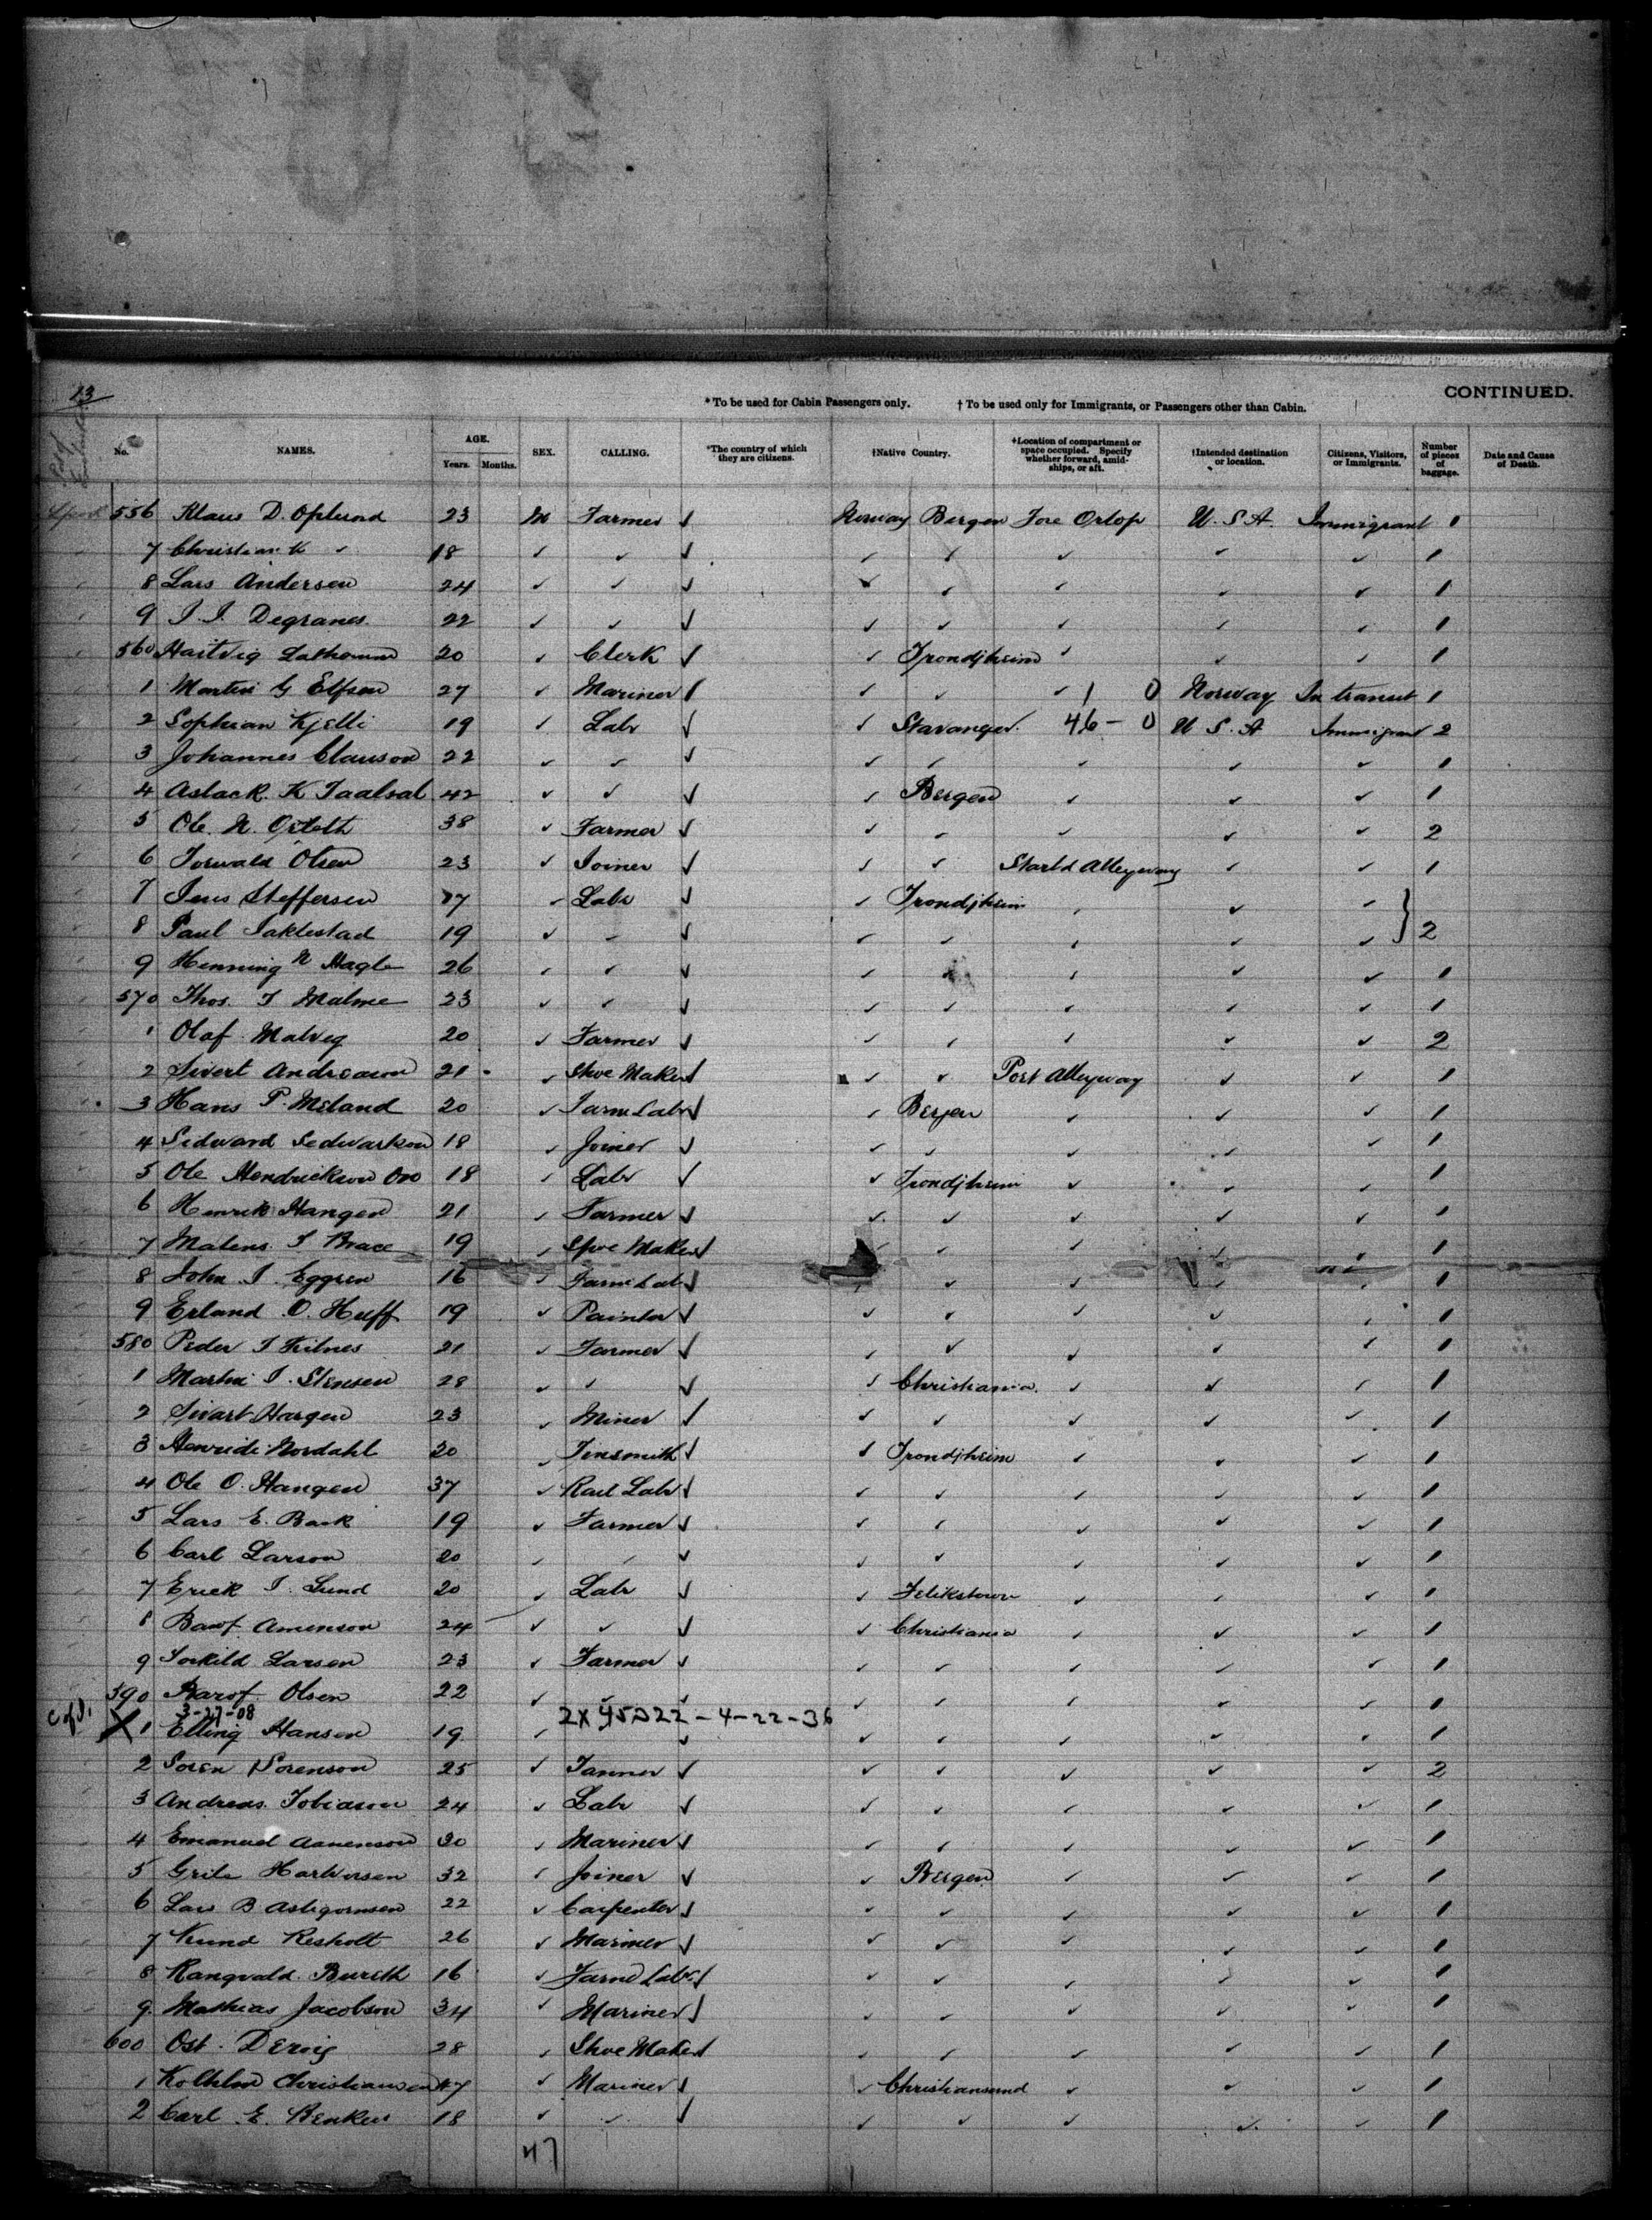 13
* To be used for Cabin Passengers only. † To be used only for Immigrants, or Passengers other than Cabin. CONTINUED.
No. NAMES. AGE. Years. Months. SEX. CALLING. *The country of which they are citizens. †Native Country. †Location of compartment or space occupied. Specify whether forward, amidships, or aft. †Intended destination or location. Citizens, Visitors, or Immigrants. Number of pieces of baggage. Date and Cause of Death.
556 Klaus D. Oplund 23 M Farmer ✓ Norway Bergen Fore Orlop U.S.A. Immigrant 1
7 Christian K ✓ 18 ✓ ✓ ✓ ✓ ✓ ✓ ✓ ✓ 1
8 Lars Andersen 24 ✓ ✓ ✓ ✓ ✓ ✓ ✓ ✓ 1
9 I. I. Degranes 22 ✓ ✓ ✓ ✓ ✓ ✓ ✓ ✓ 1
560 20 ✓ Clerk ✓ ✓ Trondjheim ✓ ✓ ✓ 1
1 Martin G Elfsen 27 ✓ Mariner ✓ ✓ ✓ ✓ 1 0 Norway In transit 1
2 Sophian Kjelli 19 ✓ Labr ✓ ✓ Stavanger 46 - 0 U.S.A Immigrant 2
3 Johannes Clauson 22 ✓ ✓ ✓ ✓ ✓ ✓ ✓ ✓ 1
4 Aslack K 42 ✓ ✓ ✓ ✓ Bergen ✓ ✓ ✓ 1
5 Ole N. 38 ✓ Farmer ✓ ✓ ✓ ✓ ✓ ✓ 2
6 Torwald Olsen 23 ✓ Joiner ✓ ✓ ✓ Starbd Alleyway ✓ ✓ 1
7 Jens Steffersen ✓ Labr ✓ ✓ Trondjheim ✓ ✓ ✓
8 Paul Saklestad 19 ✓ ✓ ✓ ✓ ✓ ✓ ✓ ✓ } 2
9 Henning N Hagle 26 ✓ ✓ ✓ ✓ ✓ ✓ ✓ ✓ 1
570 Thos. T Malme 23 ✓ ✓ ✓ ✓ ✓ ✓ ✓ ✓ 1
1 Olaf Malveg 20 ✓ Farmer ✓ ✓ ✓ ✓ ✓ ✓ 2
2 Sivert Andreason 21 ✓ Shoe Maker ✓ ✓ ✓ Port Alleyway ✓ ✓ 1
3 Hans P. Meland 20 ✓ Farm Labr ✓ ✓ Bergen ✓ ✓ ✓ 1
4 Sedward 18 ✓ Joiner ✓ ✓ ✓ ✓ ✓ ✓ 1
5 Ole Hendrickson 18 ✓ Labr ✓ ✓ Trondjheim ✓ ✓ ✓ 1
6 Henrik Hangen 21 ✓ Farmer ✓ ✓ ✓ ✓ ✓ ✓ 1
7 Matens T Brace 19 ✓ Shoe Maker ✓ ✓ ✓ ✓ ✓ ✓ 1
8 John I. Eggsen 16 ✓ Farm Labr ✓ ✓ ✓ ✓ ✓ ✓ 1
9 Erland O. Huff 19 ✓ Painter ✓ ✓ ✓ ✓ ✓ ✓ 1
580 Peder T 21 ✓ Farmer ✓ ✓ ✓ ✓ ✓ ✓ 1
1 Martin I. Stensen 28 ✓ ✓ ✓ ✓ Christiania ✓ ✓ ✓ 1
2 Sivart Hargen 23 ✓ Miner ✓ ✓ ✓ ✓ ✓ ✓ 1
3 Nordahl 30 ✓ Tinsmith ✓ ✓ Trondjheim ✓ ✓ ✓ 1
4 Ole O. Hangen 37 ✓ Rail Labr ✓ ✓ ✓ ✓ ✓ ✓ 1
5 Lars E. Back 19 ✓ Farmer ✓ ✓ ✓ ✓ ✓ ✓ 1
6 Carl Larson 20 ✓ ✓ ✓ ✓ ✓ ✓ ✓ ✓ 1
7 Erick I. Lund 20 ✓ Labr ✓ ✓ ✓ ✓ ✓ 1
8 Amenson 24 ✓ ✓ ✓ ✓ Christiania ✓ ✓ ✓ 1
9 Torkild Larsen 23 ✓ Farmer ✓ ✓ ✓ ✓ ✓ ✓ 1
590 Olsen 22 ✓ ✓ ✓ ✓ ✓ ✓ ✓ ✓ 1
3-27-08
C of A. X 1 Elling Hansen 19 ✓ 2X 45322 - 4-22-36 ✓ ✓ ✓ ✓ ✓ ✓ 1
2 Soren Sorenson 25 ✓ Tanner ✓ ✓ ✓ ✓ ✓ ✓ 2
3 Andreas Tobiason 24 ✓ Labr ✓ ✓ ✓ ✓ ✓ ✓ 1
4 Emanuel Aanenson 30 ✓ Mariner ✓ ✓ ✓ ✓ ✓ ✓ 1
5 32 ✓ Joiner ✓ ✓ Bergen ✓ ✓ ✓ 1
6 Lars B 22 ✓ Carpenter ✓ ✓ ✓ ✓ ✓ ✓ 1
7 Knud Resholt 26 ✓ Mariner ✓ ✓ ✓ ✓ ✓ ✓ 1
8 Rangvald 16 ✓ Farm Labr ✓ ✓ ✓ ✓ ✓ ✓ 1
9 Mathias Jacobson 34 ✓ Mariner ✓ ✓ ✓ ✓ ✓ ✓ 1
600 Ost. 28 ✓ Shoe Maker ✓ ✓ ✓ ✓ ✓ ✓ 1
1 Christiansen 47 ✓ Mariner ✓ ✓ Christiansund ✓ ✓ ✓ 1
2 Carl E. 18 ✓ ✓ ✓ ✓ ✓ ✓ ✓ ✓ 1
47